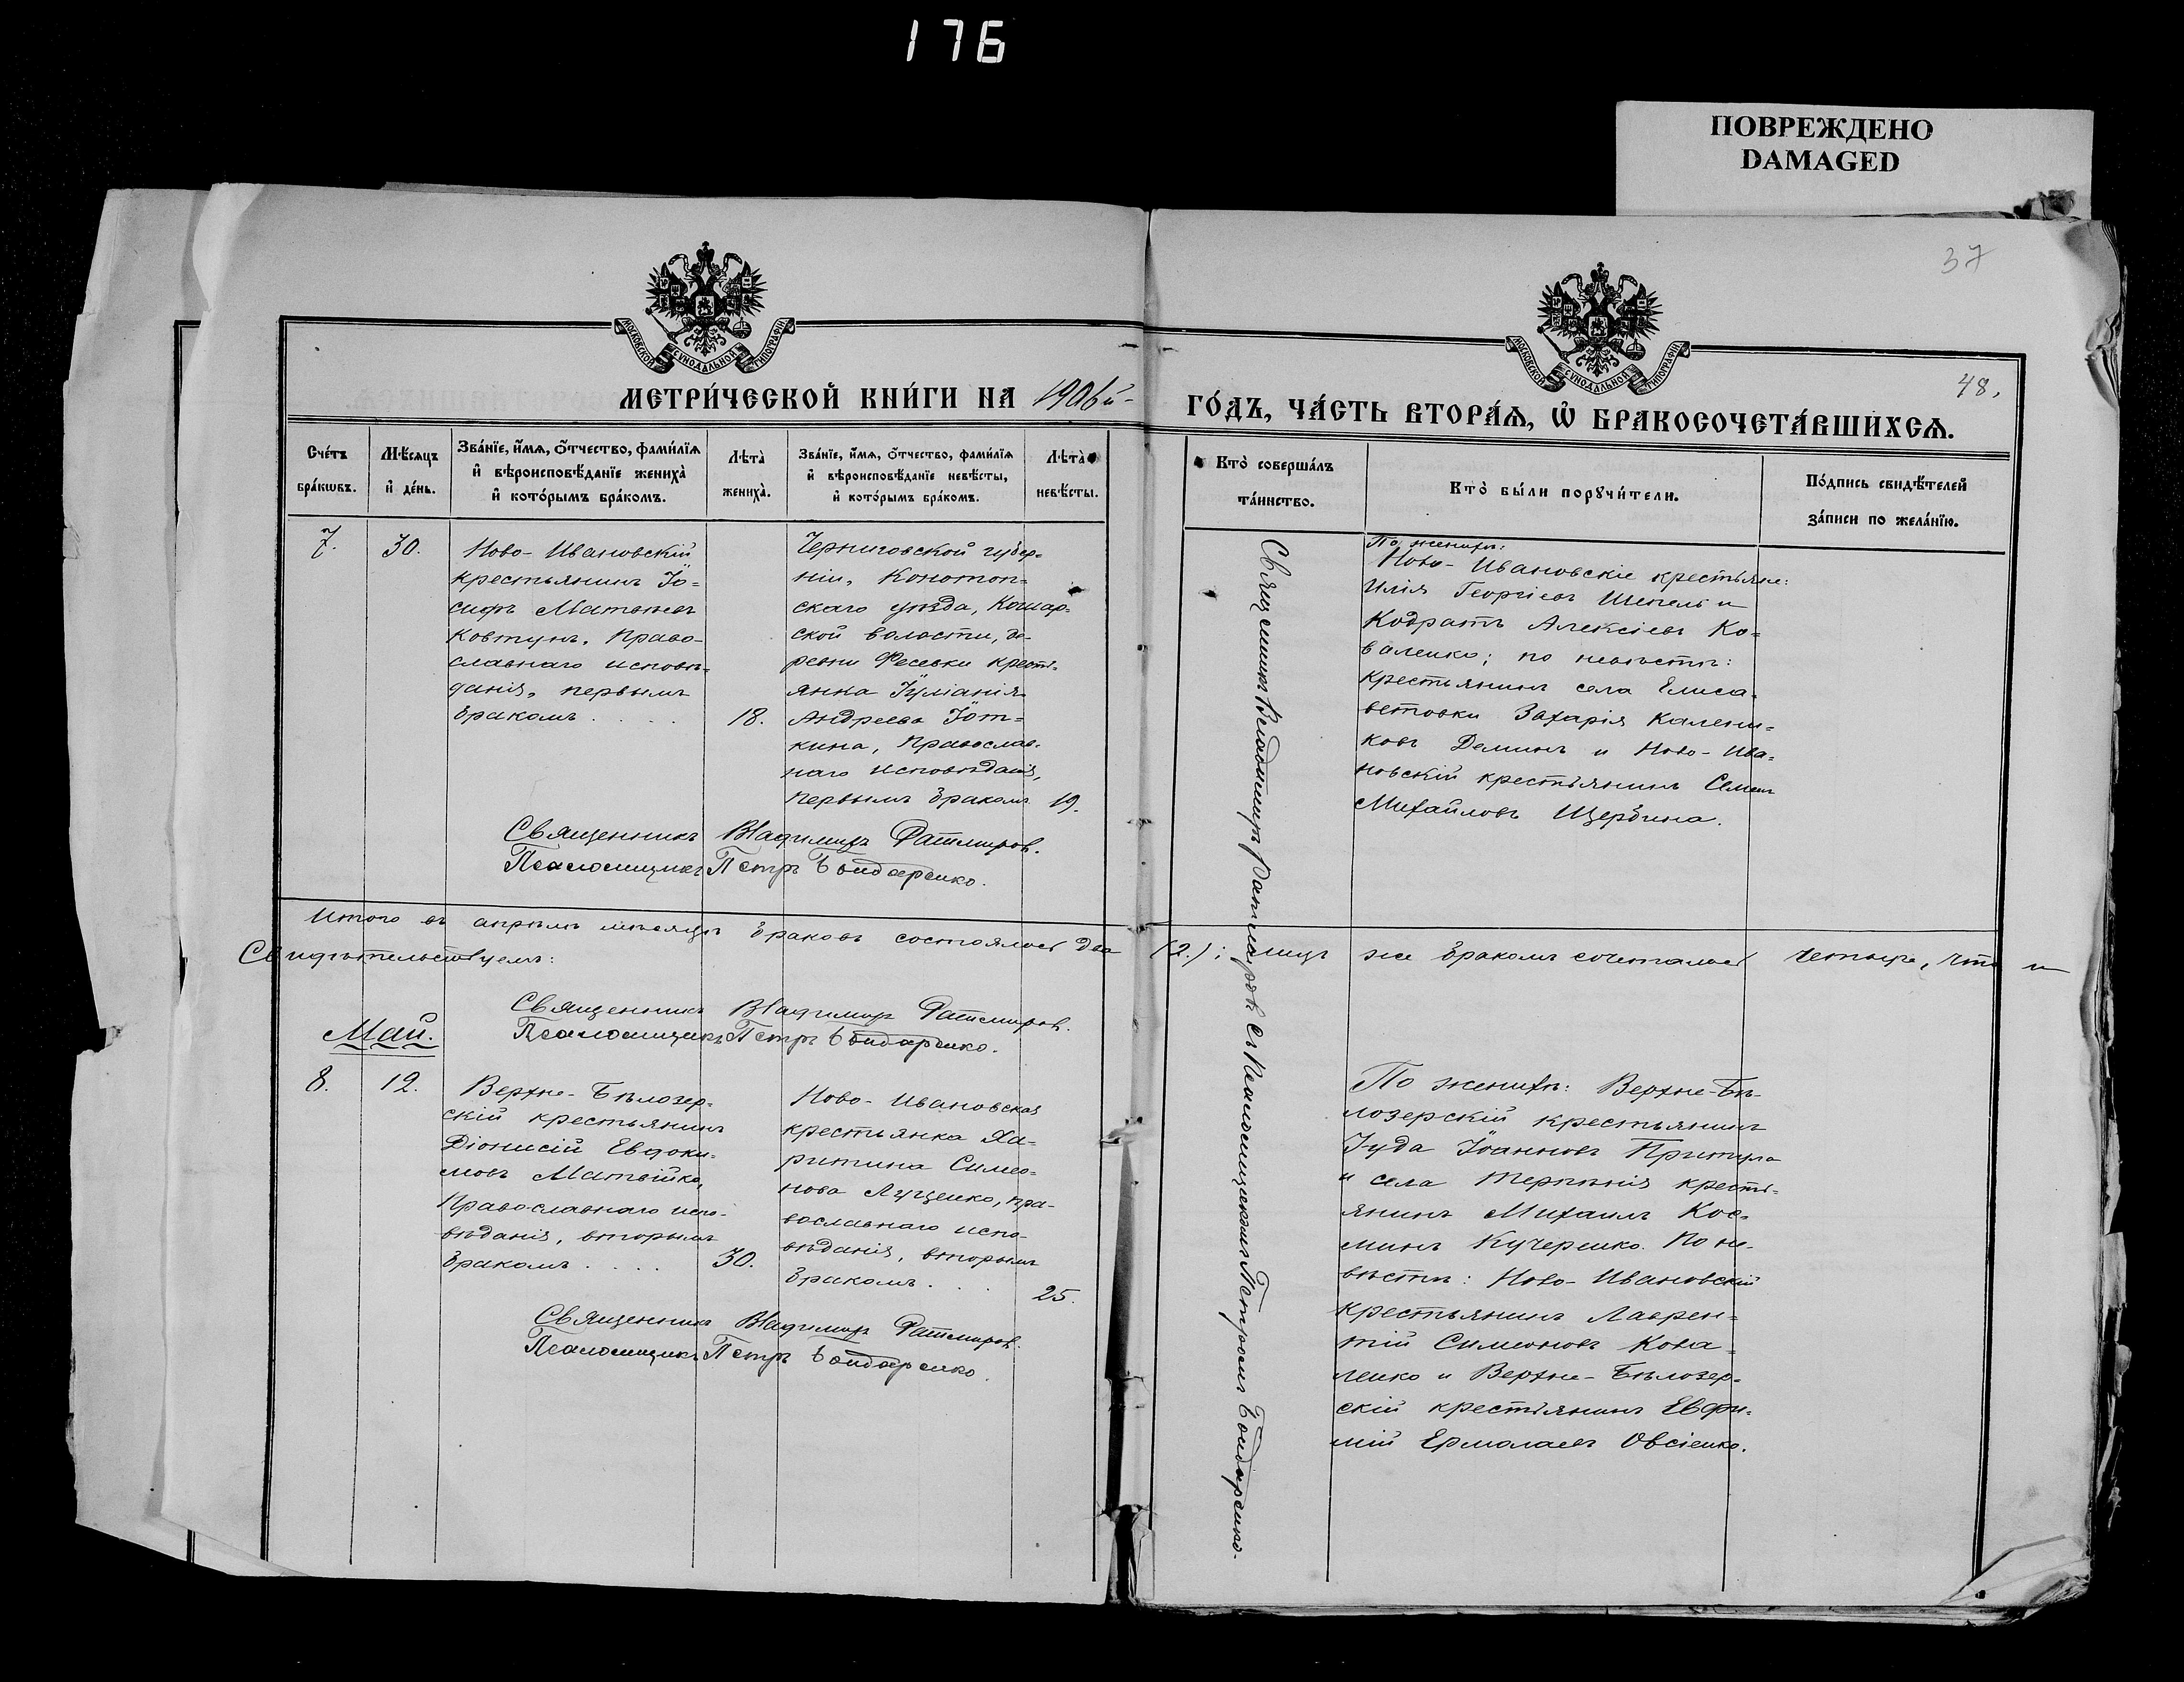 176
ПОВРЕЖДЕНО
DAMAGED
37
МОСКОВСКОЙ СѴНОДАЛЬНОЙ ТИПОГРАФІИ
МОСКОВСКОЙ СѴНОДАЛЬНОЙ ТИПОГРАФІИ
48.
МЕТРИ́ЧЕСКОЙ КНИ́ГИ НА 1906й-
ГО́ДЪ, ЧА́СТЬ ВТОРА́Я, Ѡ҆ БРАКОСОЧЕТА́ВШИХСЯ.
Сче́тъ
бра́кѡвъ.
Мѣ́сяцъ
и҆ де́нь.
Зва́нїе, и҆́мя, ѻ҆́тчество, фами́лїя
и҆ вѣроисповѣ́данїе жениха̀
и҆ кото́рымъ бра́комъ.
Лѣта̀
жениха̀.
Зва́нїе, и҆́мя, ѻ҆́тчество, фами́лїя
и҆ вѣроисповѣ́данїе невѣ́сты,
и҆ кото́рымъ бра́комъ.
Лѣта̀
невѣ́сты.
Кто̀ соверша́лъ
та́инство.
Кто̀ бы́ли порꙋчи́тели.
По́дпись свидѣ́телей
за́писи по жела́нїю.
7.
30.
Ново-Ивановскій
крестьянинъ Іо=
сифъ Матѳѣевъ
Ковтунъ, Право-
славнаго исповѣ-
данія, первымъ
бракомъ . . . .
18.
Черниговской губер=
ніи, Конотоп=
скаго уѣзда, Кошар=
ской волости, де-
ревни Фесевки крестъ-
янка Іуліанія
Андреева Іот=
кина, Православ-
наго исповѣданія,
первымъ бракомъ
19.
Священникъ Владимиръ Ратмировъ.
Псаломщикъ Петръ Бондаренко.
По женихѣ:
Ново-Ивановскіе крестьяне:
Илія Георгіевъ Шепель и
Кодратъ Алексіевъ Ко=
валенко; по невѣстѣ:
крестьянинъ села Елиса-
ветовки Захарія Калени=
ковъ Деминъ и Ново-Ива=
новскій крестьянинъ Семенъ
Михайловъ Щербина.
Священникъ Владимиръ Ратмировъ съ Псаломщикомъ Петромъ Бондаренко.
Итого въ апрѣлѣ мѣсяцѣ браковъ состоялось два (2.); лицъ же бракомъ сочеталось четыре, что и
Свидѣтельствуемъ:
Священникъ Владимиръ Ратмировъ.
Псаломщикъ Петръ Бондаренко.
Май.
8.
12.
Верхне-Бѣлозер-
скій крестьянинъ
Діонисій Евдоки-
мовъ Матвійко,
Православнаго испо-
вѣданія, вторымъ
бракомъ . . . .
30.
Ново-Ивановская
крестьянка Ха-
ритина Симео-
нова Луценко, пра-
вославнаго испо-
вѣданія, вторымъ
бракомъ . . .
25.
Священникъ Владимиръ Ратмировъ.
Псаломщикъ Петръ Бондаренко.
По женихѣ: Верхне-Бѣ-
лозерскій крестьянинъ
Іуда Іоанновъ Притула
и села Терпѣнія кресть-
янинъ Михаилъ Кос-
минъ Кучеренко. По не-
вѣстѣ: Ново-Ивановскій
крестьянинъ Лаврен=
тій Симеоновъ Кова=
ленко и Верхне-Бѣлозер=
скій крестьянинъ Евфи-
мій Ермолаевъ Овсіенко.